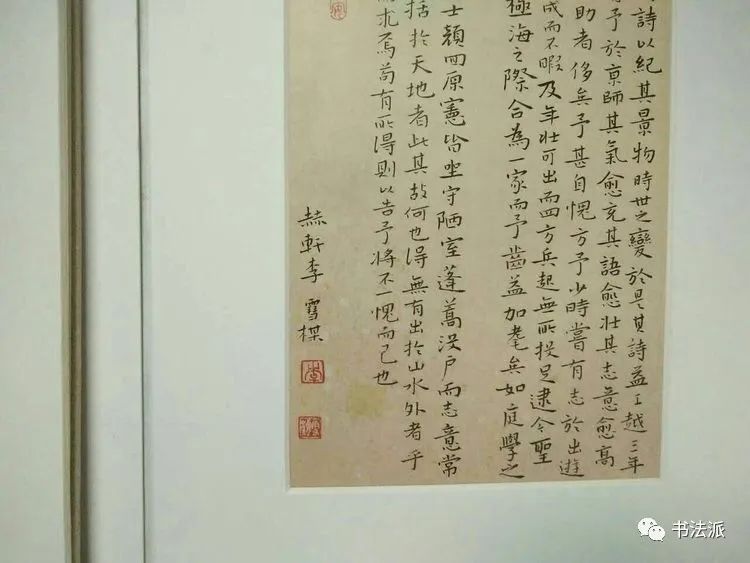 詩以紀其景物時世之變於是其詩益工越三年
予於京師其氣愈充其語愈壯其志意愈高
助者侈矣予甚自愧方予少時嘗有志於出遊
成而不暇及年壯可出而四方兵起無所投足逮今聖
極海之際合為一家而予齒益加耄矣如庭學之
士顏回原憲皆坐守陋室蓬蒿沒戶而志意常
括於天地者此其故何也得無有出於山水外者乎
求焉苟有所得則以告予將不一愧而已也
赫軒李雪楳
李
书法派